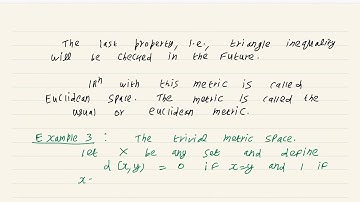 The last property, i.e., triangle inequality
will be checked in the future.
IRⁿ with this metric is called
Euclidean space. The metric is called the
usual or euclidean metric.
Example 3 : The trivial metric space.
Let X be any set and define
d(x,y) = 0 if x=y and 1 if
x